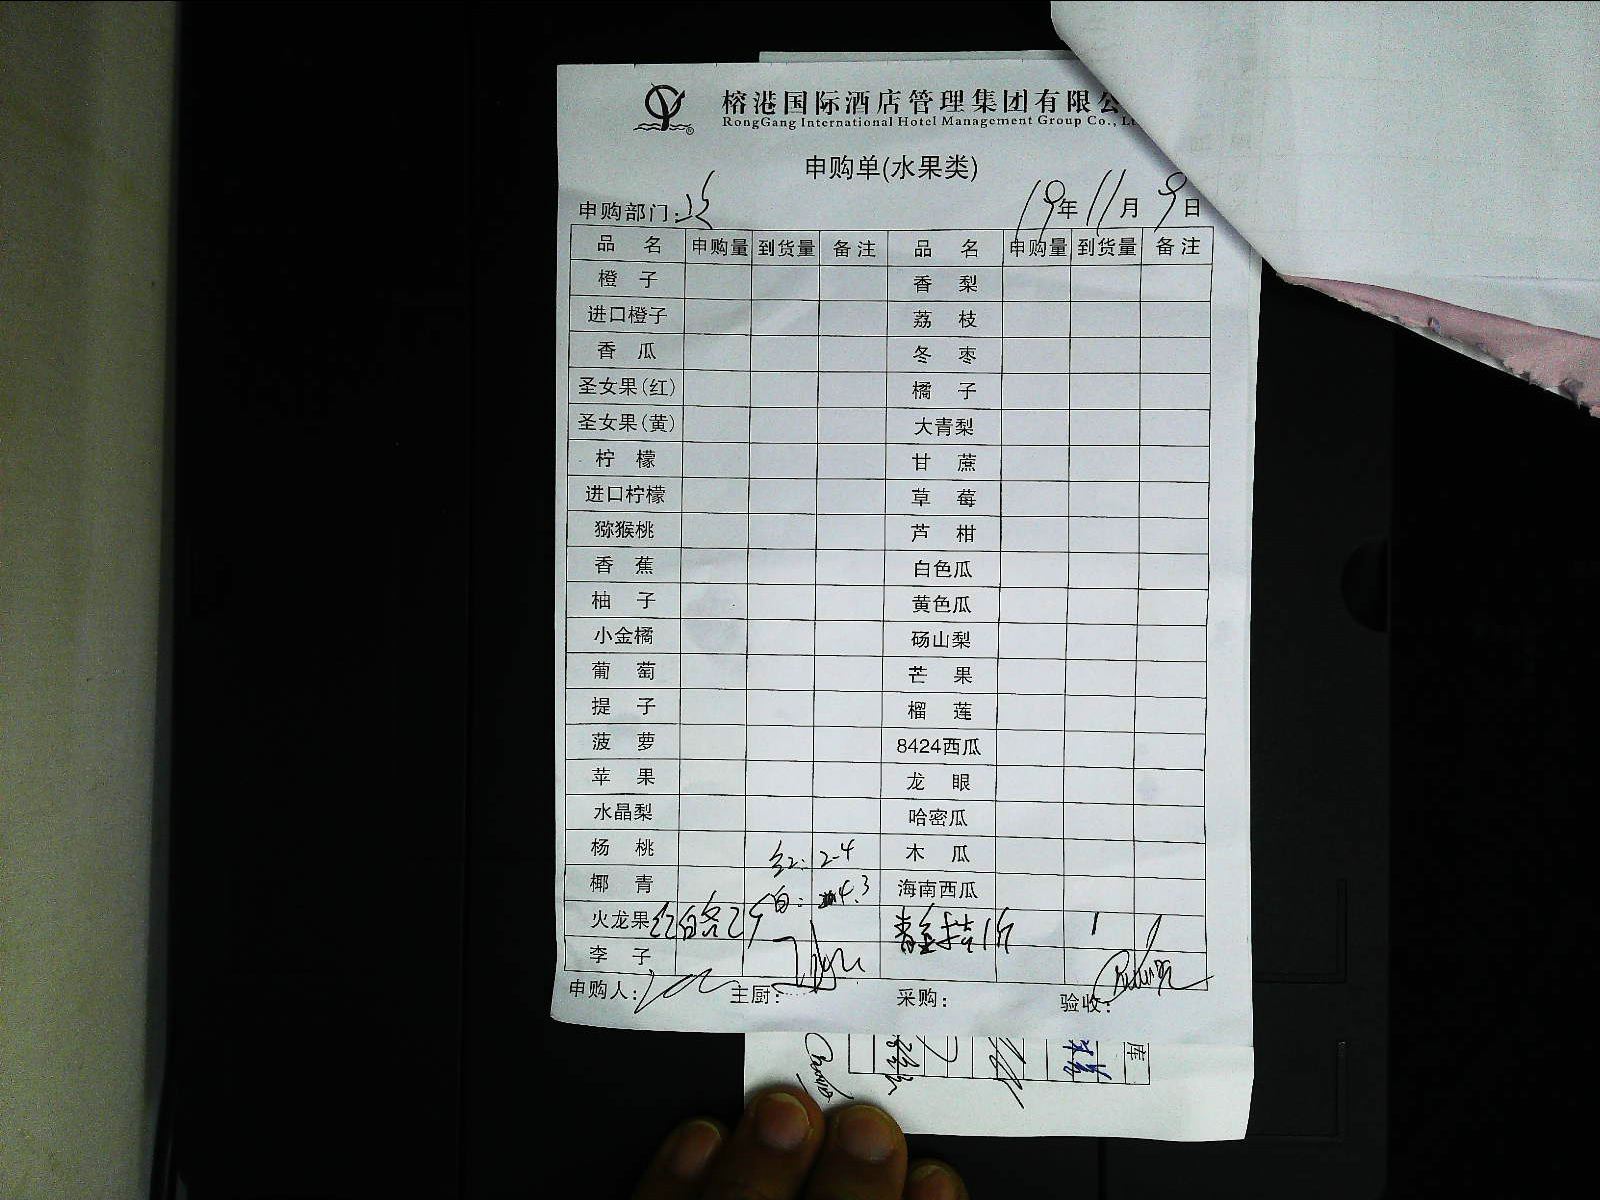 榕港国际酒店管理集团有限公
RongGang International Hotel Management Group Co., Lt
申购单(水果类)
申购部门: 19年11月9日
品名 申购量 到货量 备注 品名 申购量 到货量 备注
橙子 香梨
进口橙子 荔枝
香瓜 冬枣
圣女果(红) 橘子
圣女果(黄) 大青梨
柠檬 甘蔗
进口柠檬 草莓
猕猴桃 芦柑
香蕉 白色瓜
柚子 黄色瓜
小金橘 砀山梨
葡萄 芒果
提子 榴莲
菠萝 8424西瓜
苹果 龙眼
水晶梨 哈密瓜
杨桃 红: 2-4 木瓜
椰青 白: 4.3 海南西瓜
火龙果 红白各2斤 青金桔1斤 1
李子
申购人: 主厨: 采购: 验收:
库